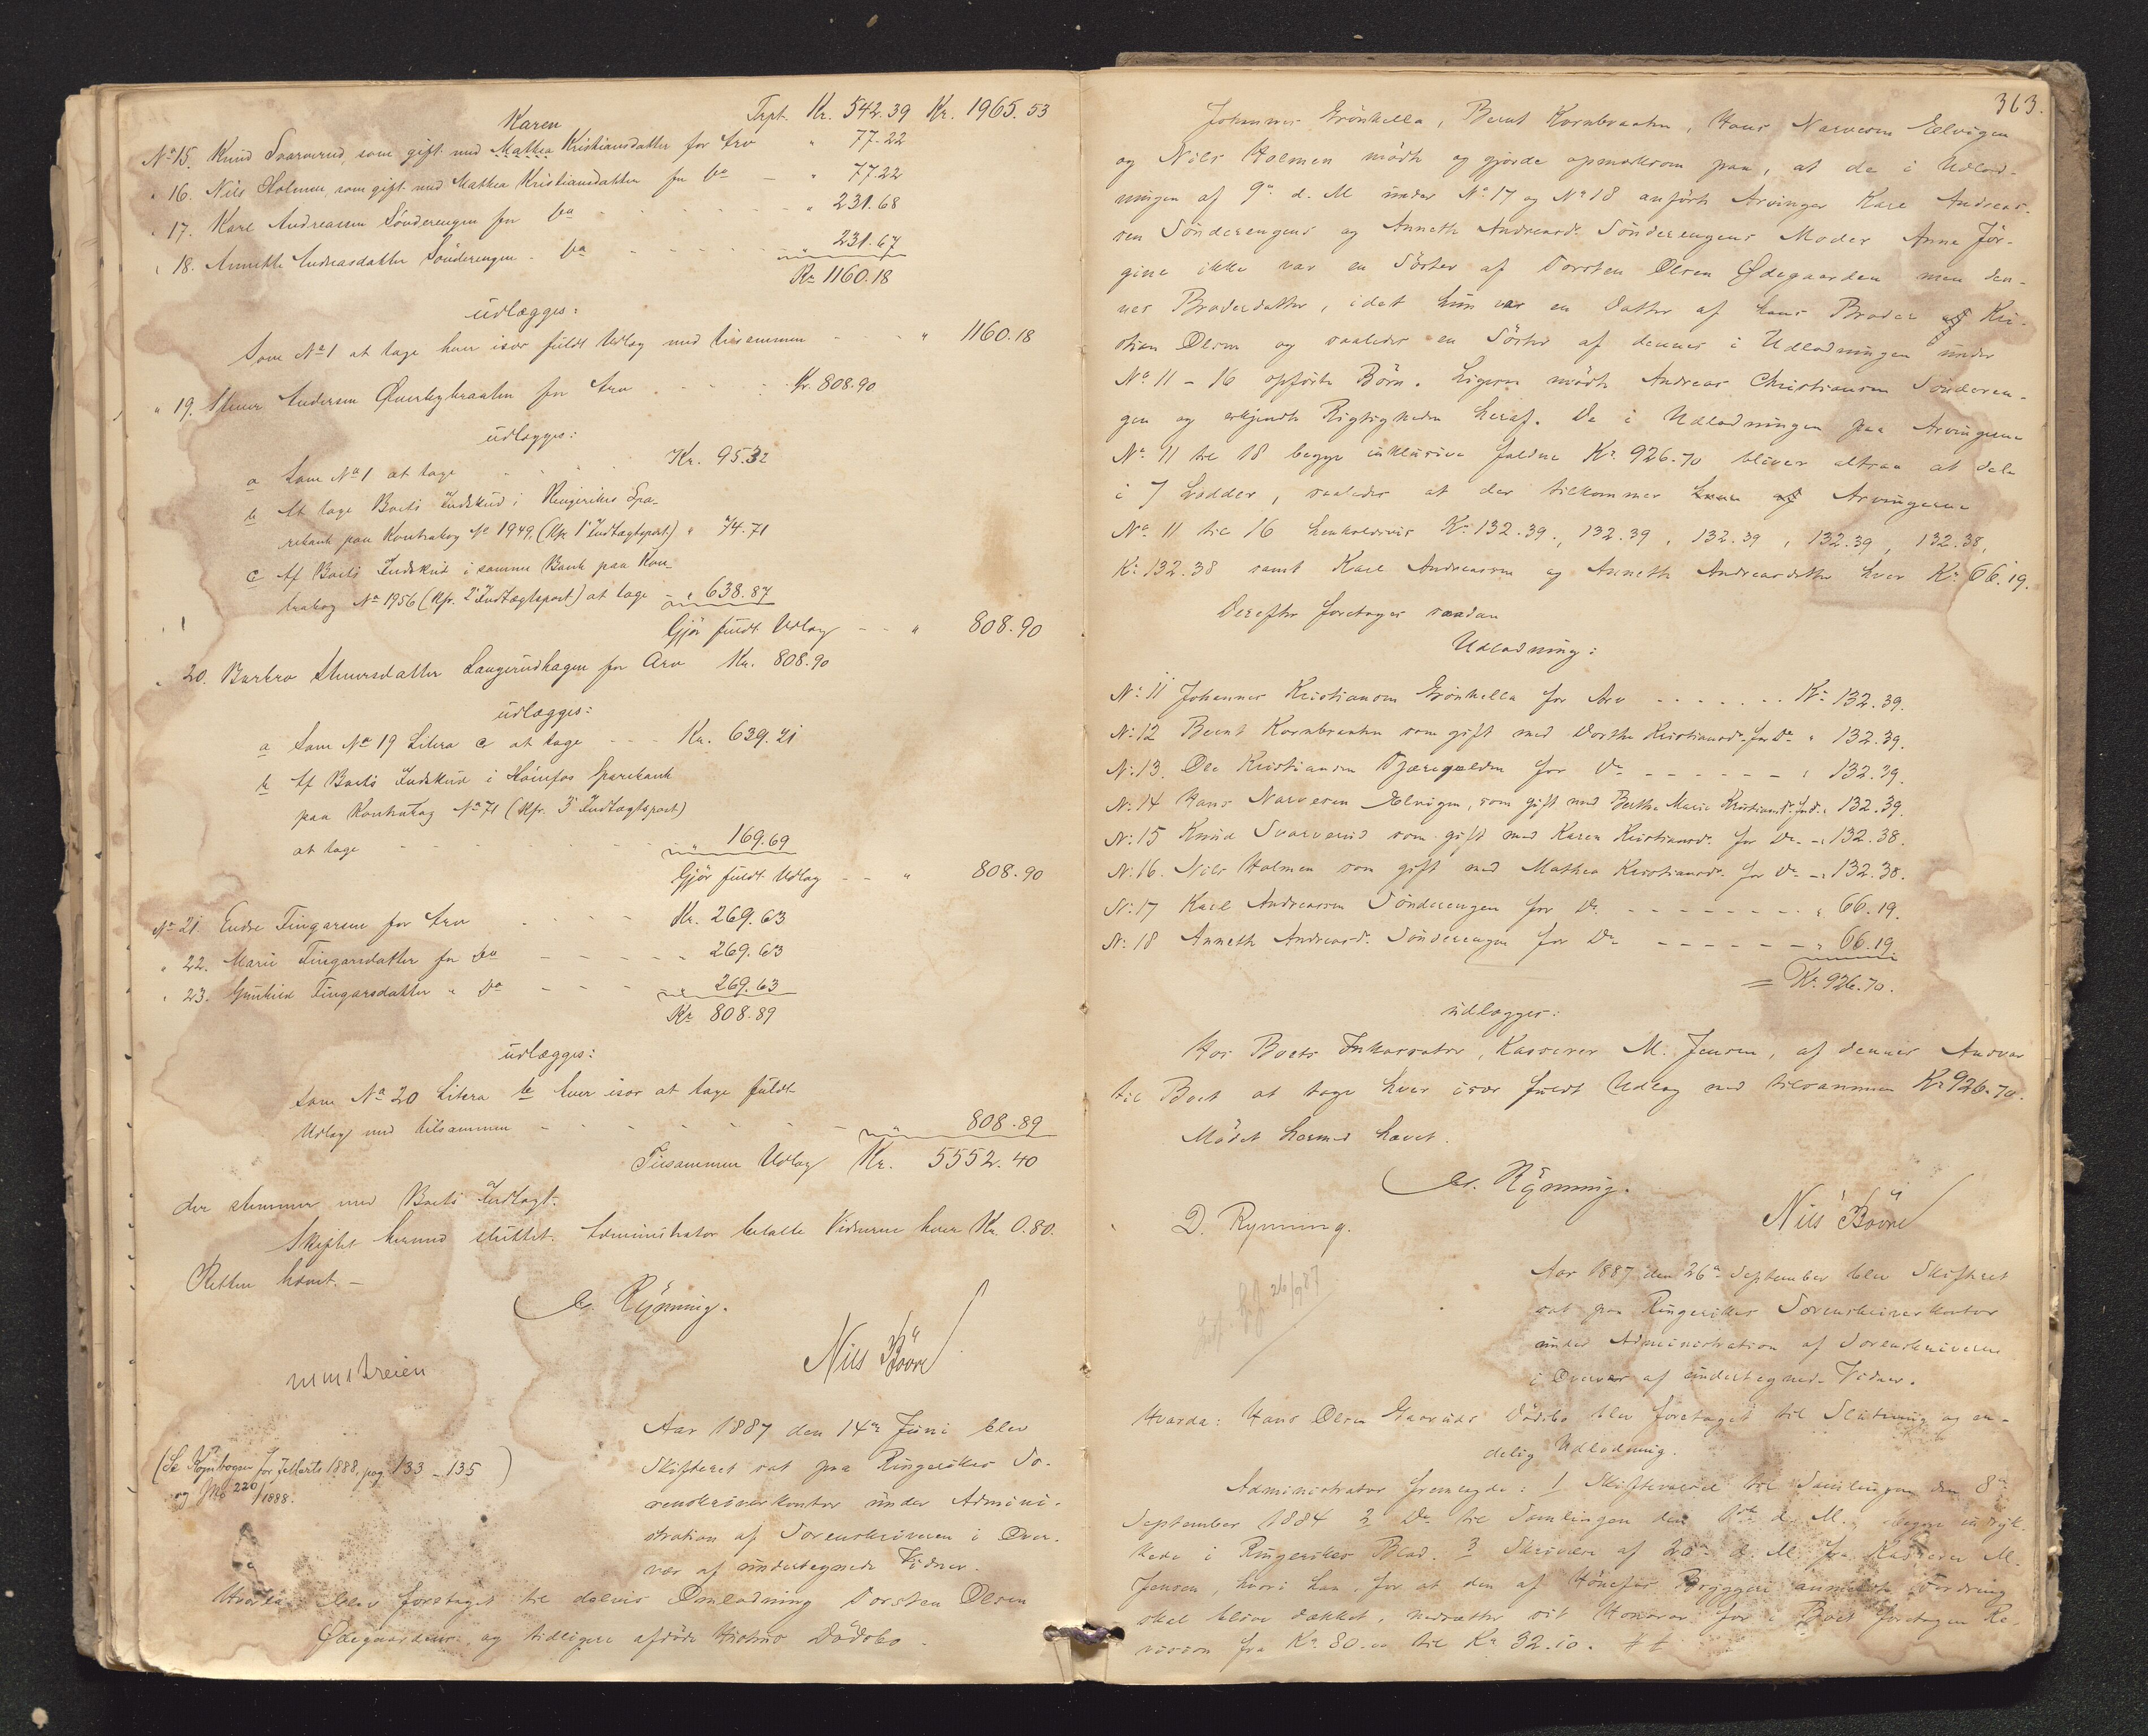 Trpt. Kr. 542.39 Kr. 1965.53
Karen
No 15. Knud Svarverud, som gift med Mathea Kristiansdatter for Arv " 77.22
" 16. Nils Holmen, som gift med Mathea Kristiansdatter for Do - " 77.22
" 17. Karl Andreassen Sönderengen for Do - - - " 231.68
" 18. Annette Andreasdatter Sönderengen - Do - - - " 231.67
Kr 1160.18
udlægges:
Som No 1 at tage hver især fuldt Udlæg med tilsammen - - " 1160.18
" 19. Stener Andersen Øverbybraaten for Arv - - - Kr. 808.90
udlægges:
a Som No 1 at tage - - - Kr. 95.32
b At tage Boets Indskud i Ringerikes Spa-
rebank paa Kontrabog No 1949. (Kfr. 1' Indtægtspost) " 74.71
c Af Boets Indskud i samme Bank paa Kon-
trabog No 1956 (Kfr. 2' Indtægtspost) at tage - " 638.87
Gjør fuldt Udlæg - - " 808.90
" 20. Barbro Stenersdatter Laugerudhagen for Arv Kr. 808.90
udlægges:
a Som No 19 Litera c at tage - - - Kr. 639.21
b Af Boets Indskud i Hönefos Sparebank
paa Kontrabog No 71 (Kfr. 3' Indtægtspost)
at tage - - - - " 169.69
Gjør fuldt Udlæg - - " 808.90
No 21. Endre Fingarsen for Arv - - - Kr. 269.63
" 22. Marie Fingarsdatter for Do - - - " 269.63
" 23. Gunhild Fingarsdatter " Do - - - " 269.63
Kr 808.89
udlægges:
Som No 20 Litera b hver især at tage fuldt
Udlæg med tilsammen - - - - - " 808.89
Tilsammen Udlæg Kr. 5552.40
der stemmer med Boets Indtægt.
Skiftet hermed sluttet. Administrator betalte Vidnerne hver Kr. 0.80.
Retten hævet. -
C. Rynning.
Nils Bövre
Aar 1887 den 14de Juni blev
(Se Kopibogen for 1888, pag 133 - 135)
og 220/1888.
Skifteret sat paa Ringerikes So-
renskriverkontor under Admini-
stration af Sorenskriveren i Over-
vær af undertegnede Vidner.
Hvorda blev foretaget til delvis Omlodning Torsten Olsen
Ødegaardens og tidligere afdöde Hustrus Dödsbo.
363.
Johannes Grönhella, Bernt Kornbraaten, Hans Narvesen Elvigen
og Nils Holmen mödte og gjorde opmerksom paa, at de i Udlod-
ningen af 9de d. M. under No 17 og No 18 anförte Arvinger Karl Andreas-
sen Sönderengens og Annette Andreasd. Sönderengens Moder Anne Jör-
gine ikke var en Söster af Torsten Olsen Ødegaarden men den-
nes Broderdatter, idet hun var en Datter af hans Broder Kri-
stian Olsen og saaledes en Söster af dennes i Udlodningen under
No 11 - 16 opförte Börn. Ligesaa mödte Andreas Christiansen Sönderen-
gen og erkjendte Rigtigheden heraf. De i Udlodningen paa Arvingerne
No 11 til 18 begge inklusive faldne Kr. 926.70 bliver altsaa at dele
i 7 Lodder, saaledes at der tilkommer Arvingerne
No 11 til 16 henholdsvis Kr. 132.39., 132.39, 132.39, 132.39, 132.38,
Kr. 132.38 samt Karl Andreassen og Annette Andreasdatter hver Kr. 66.19.
Derefter foretoges saadan
Udlodning:
No 11 Johannes Kristiansen Grönhella for Arv - - - - Kr. 132.39.
No 12 Bernt Kornbraaten som gift med Dorthe Kristiansd. for Do " 132.39.
No 13. Ole Kristiansen for Do - - - - - " 132.39.
No 14 Hans Narvesen Elvigen, som gift med Berthe Marie Kristiansd. for Do " 132.39.
No 15 Knud Svarverud som gift med Karen Kristiansd. for Do - " 132.38.
No 16. Nils Holmen som gift med Mathea Kristiansd. for Do - " 132.38.
No 17 Karl Andreassen Sönderengen for Do - - - - - " 66.19.
No 18 Annette Andreasd. Sönderengen for Do - - - - - " 66.19
= Kr. 926.70.
udlægges:
Hos Boets Inkassator, Kasserer M. Jensen, af dennes Ansvar
til Boet at tage hver især fuldt Udlæg med tilsammen Kr 926.70.
Mödet hermed hævet.
C. Rynning.
D. Rynning.
Nils Bövre
26/9 87
Aar 1887 den 26de September blev Skifteret
sat paa Ringerikes Sorenskriverkontor
under Administration af Sorenskriveren
i Overvær af undertegnede Vidner.
Hvorda: Hans Olsen Dödsbo blev foretaget til Slutning og en-
delig Udlodning.
Administrator fremlagde: 1 til Samlingen den 8de
September 1884 2 Do til Samlingen den d. M., begge indryk-
kede i Ringerikes Blad. 3 Skrivelse af 20de d. M. fra Kasserer M.
Jensen, hvori han, for at den af Hönefos Bryggeri anmeldte Fordring
skal blive dækket, nedsætter sit Honorar for i Boet foretagen Re-
vision fra Kr. 80.00 til Kr 32.10.